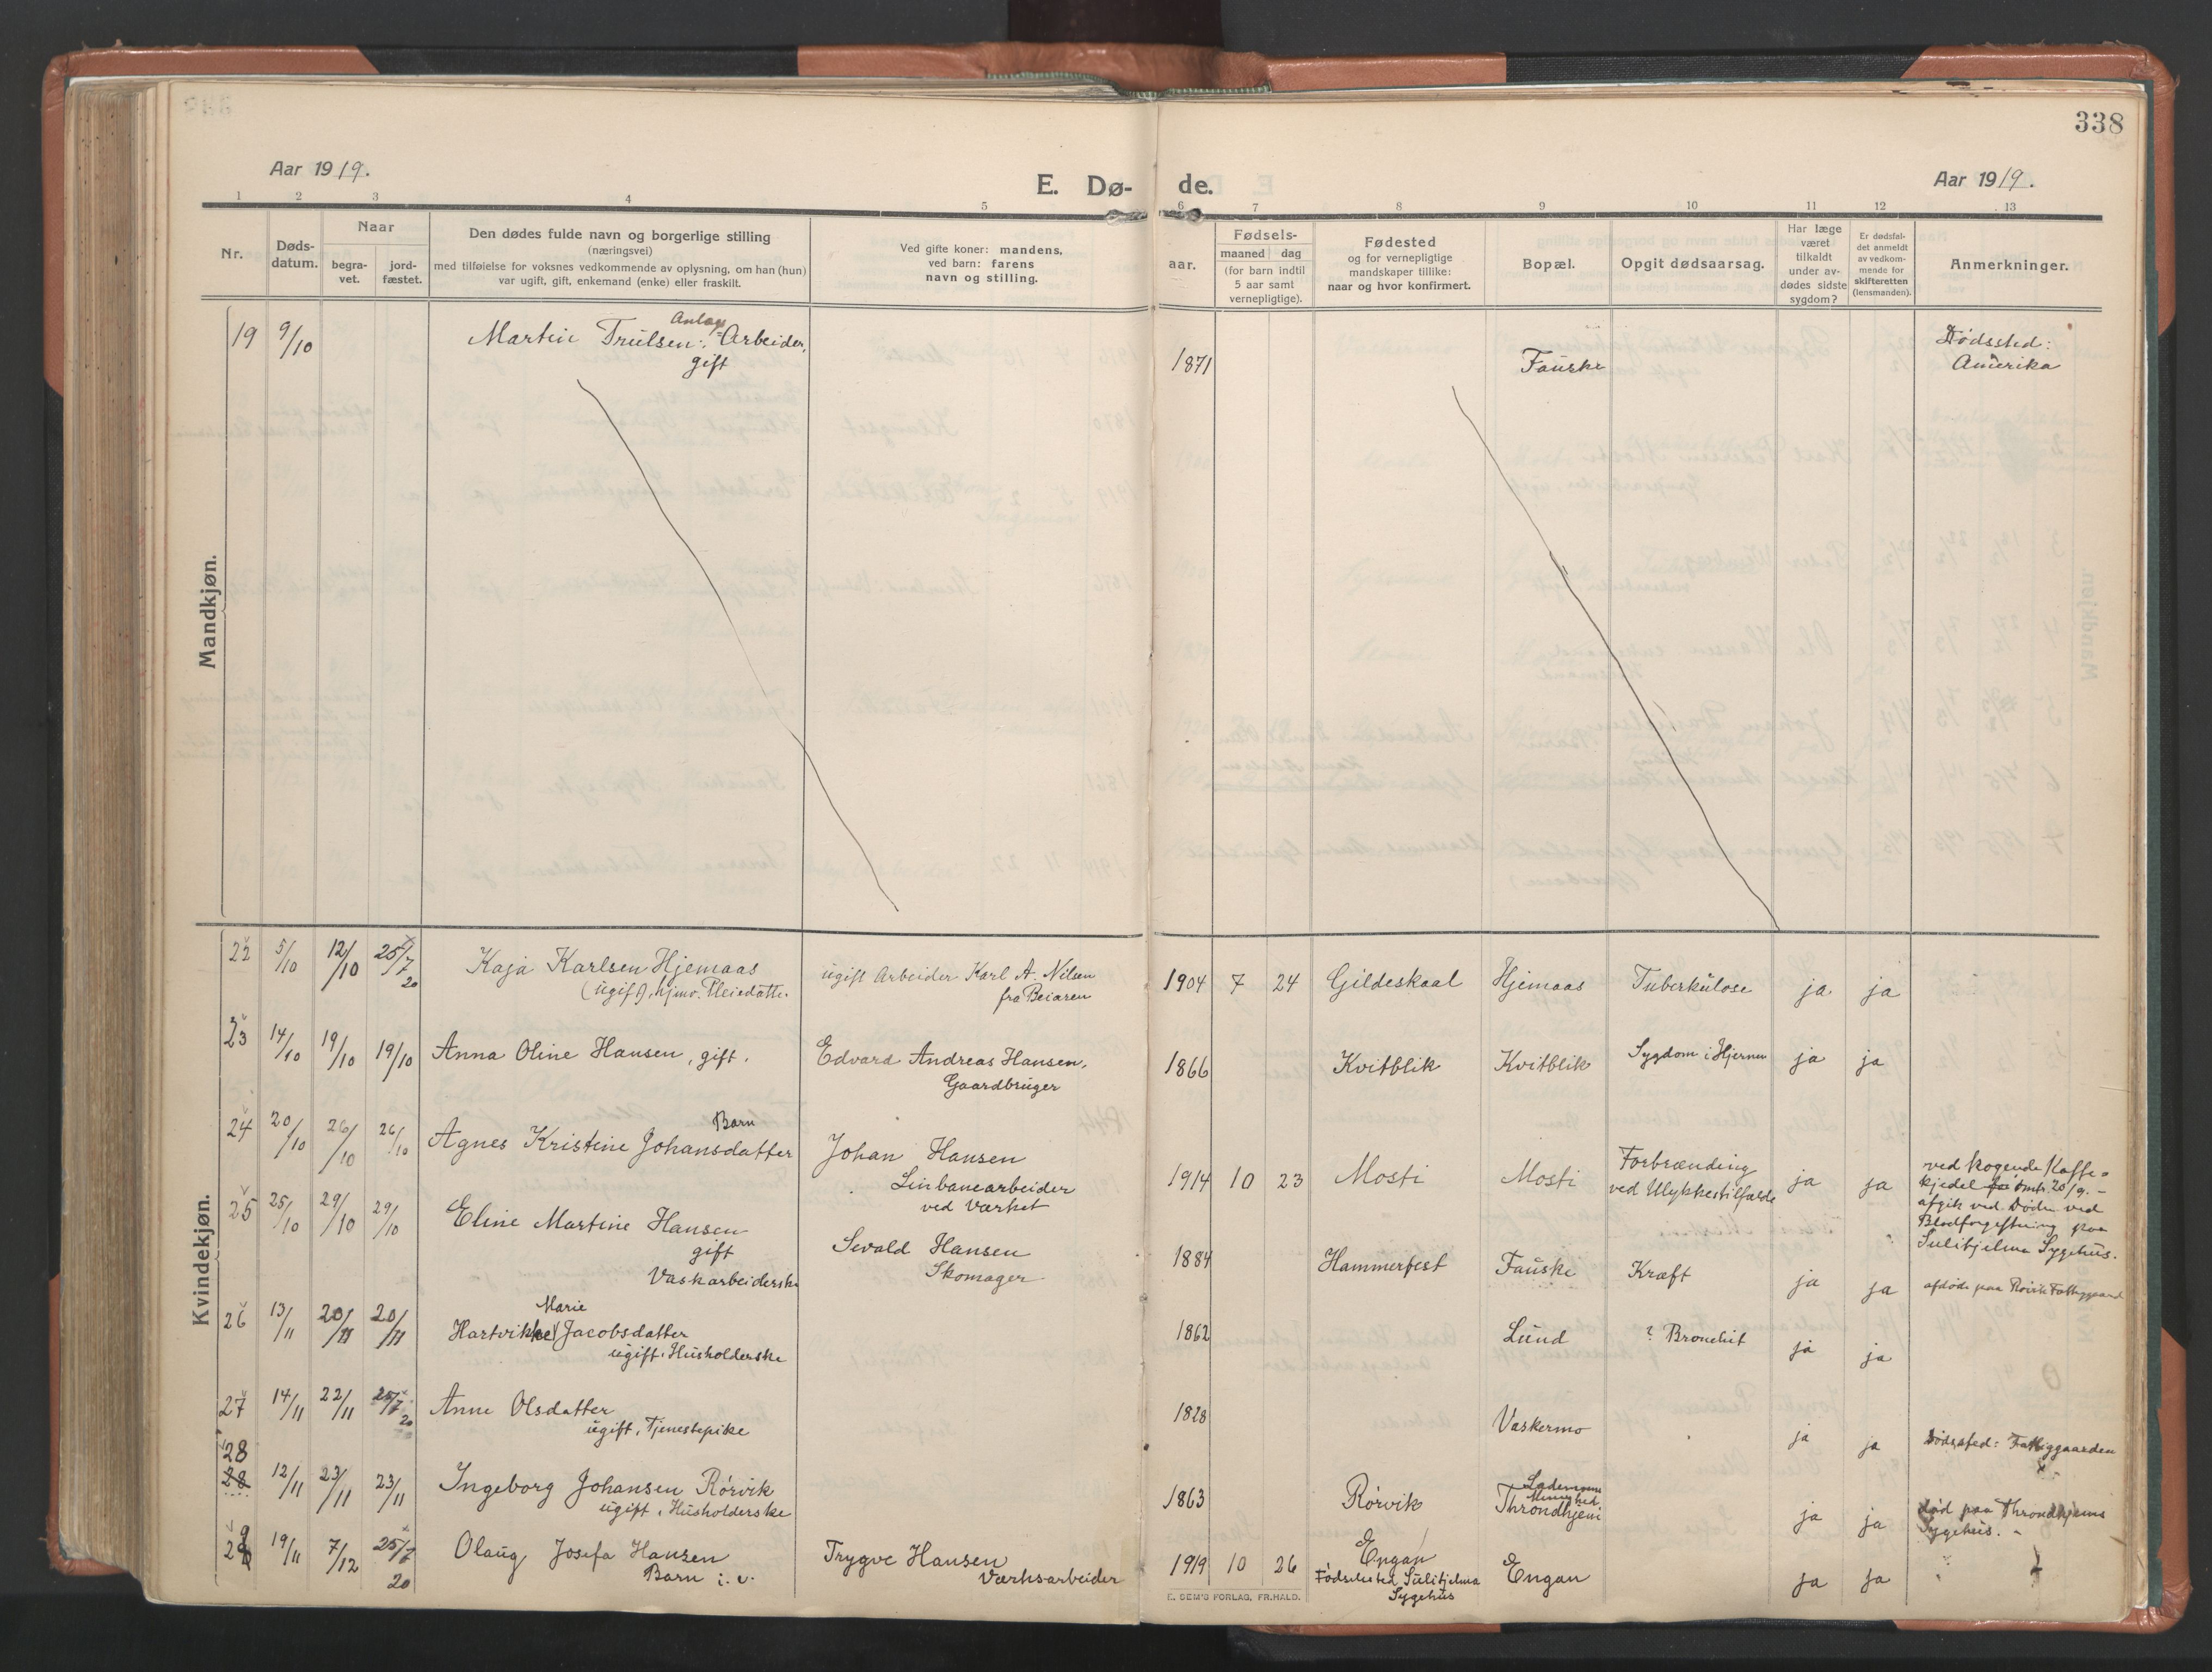 338
Aar 1919.
E. Dø-
de.
Aar 1919.
1 2 3 4 5 6 7 8 9 10 11 12 13
Nr.
Døds-
datum.
Naar
begra-
vet.
jord-
fæstet.
Den dødes fulde navn og borgerlige stilling
(næringsvei)
med tilføielse for voksnes vedkommende av oplysning, om han (hun)
var ugift, gift, enkemand (enke) eller fraskilt.
Ved gifte koner: mandens,
ved barn: farens
navn og stilling.
Fødsels-
aar.
maaned dag
(for barn indtil
5 aar samt
vernepligtige).
Fødested
og for vernepligtige
mandskaper tillike:
naar og hvor konfirmert.
Bopæl.
Opgit dødsaarsag.
Har læge
været
tilkaldt
under av-
dødes sidste
sygdom?
Er dødsfal-
det anmeldt
av vedkom-
mende for
skifteretten
(lensmanden).
Anmerkninger.
Mandkjøn.
19 9/10 Martin Trulsen: Anlegs-Arbeider,
gift
1871 Fauske
Dødssted:
Amerika
Kvindekjøn.
22 5/10 12/10 25/7 20 Kaja Karlsen Hjemaas
(ugift), hjmv. Pleiedatter
ugift Arbeider Karl A. Nilsen
fra Beiaren
1904 7 24 Gildeskaal Hjemaas Tuberkulose ja ja
23 14/10 19/10 19/10 Anna Oline Hansen, gift.
Edvard Andreas Hansen,
Gaardbruger
1866 Kvitblik Kvitblik Sygdom i Hjernen ja ja
24 20/10 26/10 26/10 Barn
Agnes Kristine Johansdatter
Johan Hansen
Linbanearbeider
ved Værket
1914 10 23 Mosti Mosti Forbrænding
ved Ulykkestilfælde ja ja
ved kogende Kaffe-
kjedel omtr. 20/9. -
afgik ved Døden ved
Blodforgiftning paa
Sulitjelma Sygehus.
25 25/10 29/10 29/10 Eline Martine Hansen
gift
Vaskarbeiderske
Sevald Hansen
Skomager
1884 Hammerfest Fauske Kræft ja ja afdøde paa Røvik Fattiggaard
26 13/11 20/11 20/11 Marie
Hartvikke Jacobsdatter
ugift. Husholderske
1862 Lund ? Bronchit ja ja
27 14/11 22/11 25/7 20 Anne Olsdatter
ugift, Tjenestepike
1828 Vaskermo ja ja Dødssted: Fattiggaarden
28
28 12/11 23/11 23/11 Ingeborg Johansen Rørvik
ugift, Husholderske
1863 Rørvik Lademoens
Menighed.
Throndhjem ja ja
død paa Throndhjems
Sygehus. -
29 19/11 7/12 25/7 20 Olaug Josefa Hansen
Barn i. e.
Trygve Hansen
Værksarbeider
1919 10 26 Engan
Fødselssted Sulitjelma
Sygehus
Engan ja ja
E. SEM'S FORLAG, FR.HALD.